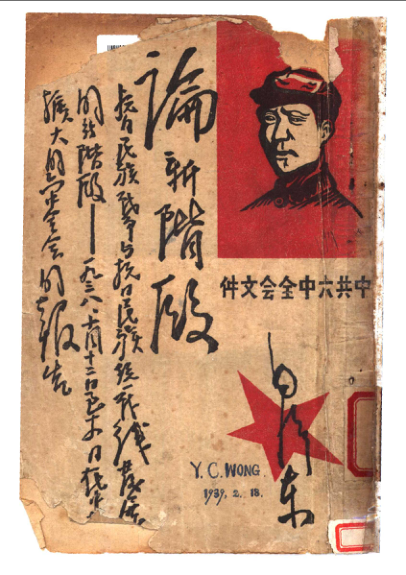 中共六中全会文件
毛澤东
論新階段
抗日民族战爭与抗日民族統一战线發展
的新階段——一九三八、十月十二日至十四日在中共
擴大的六中全会的報告
Y. C. WONG.
1939. 2. 18.